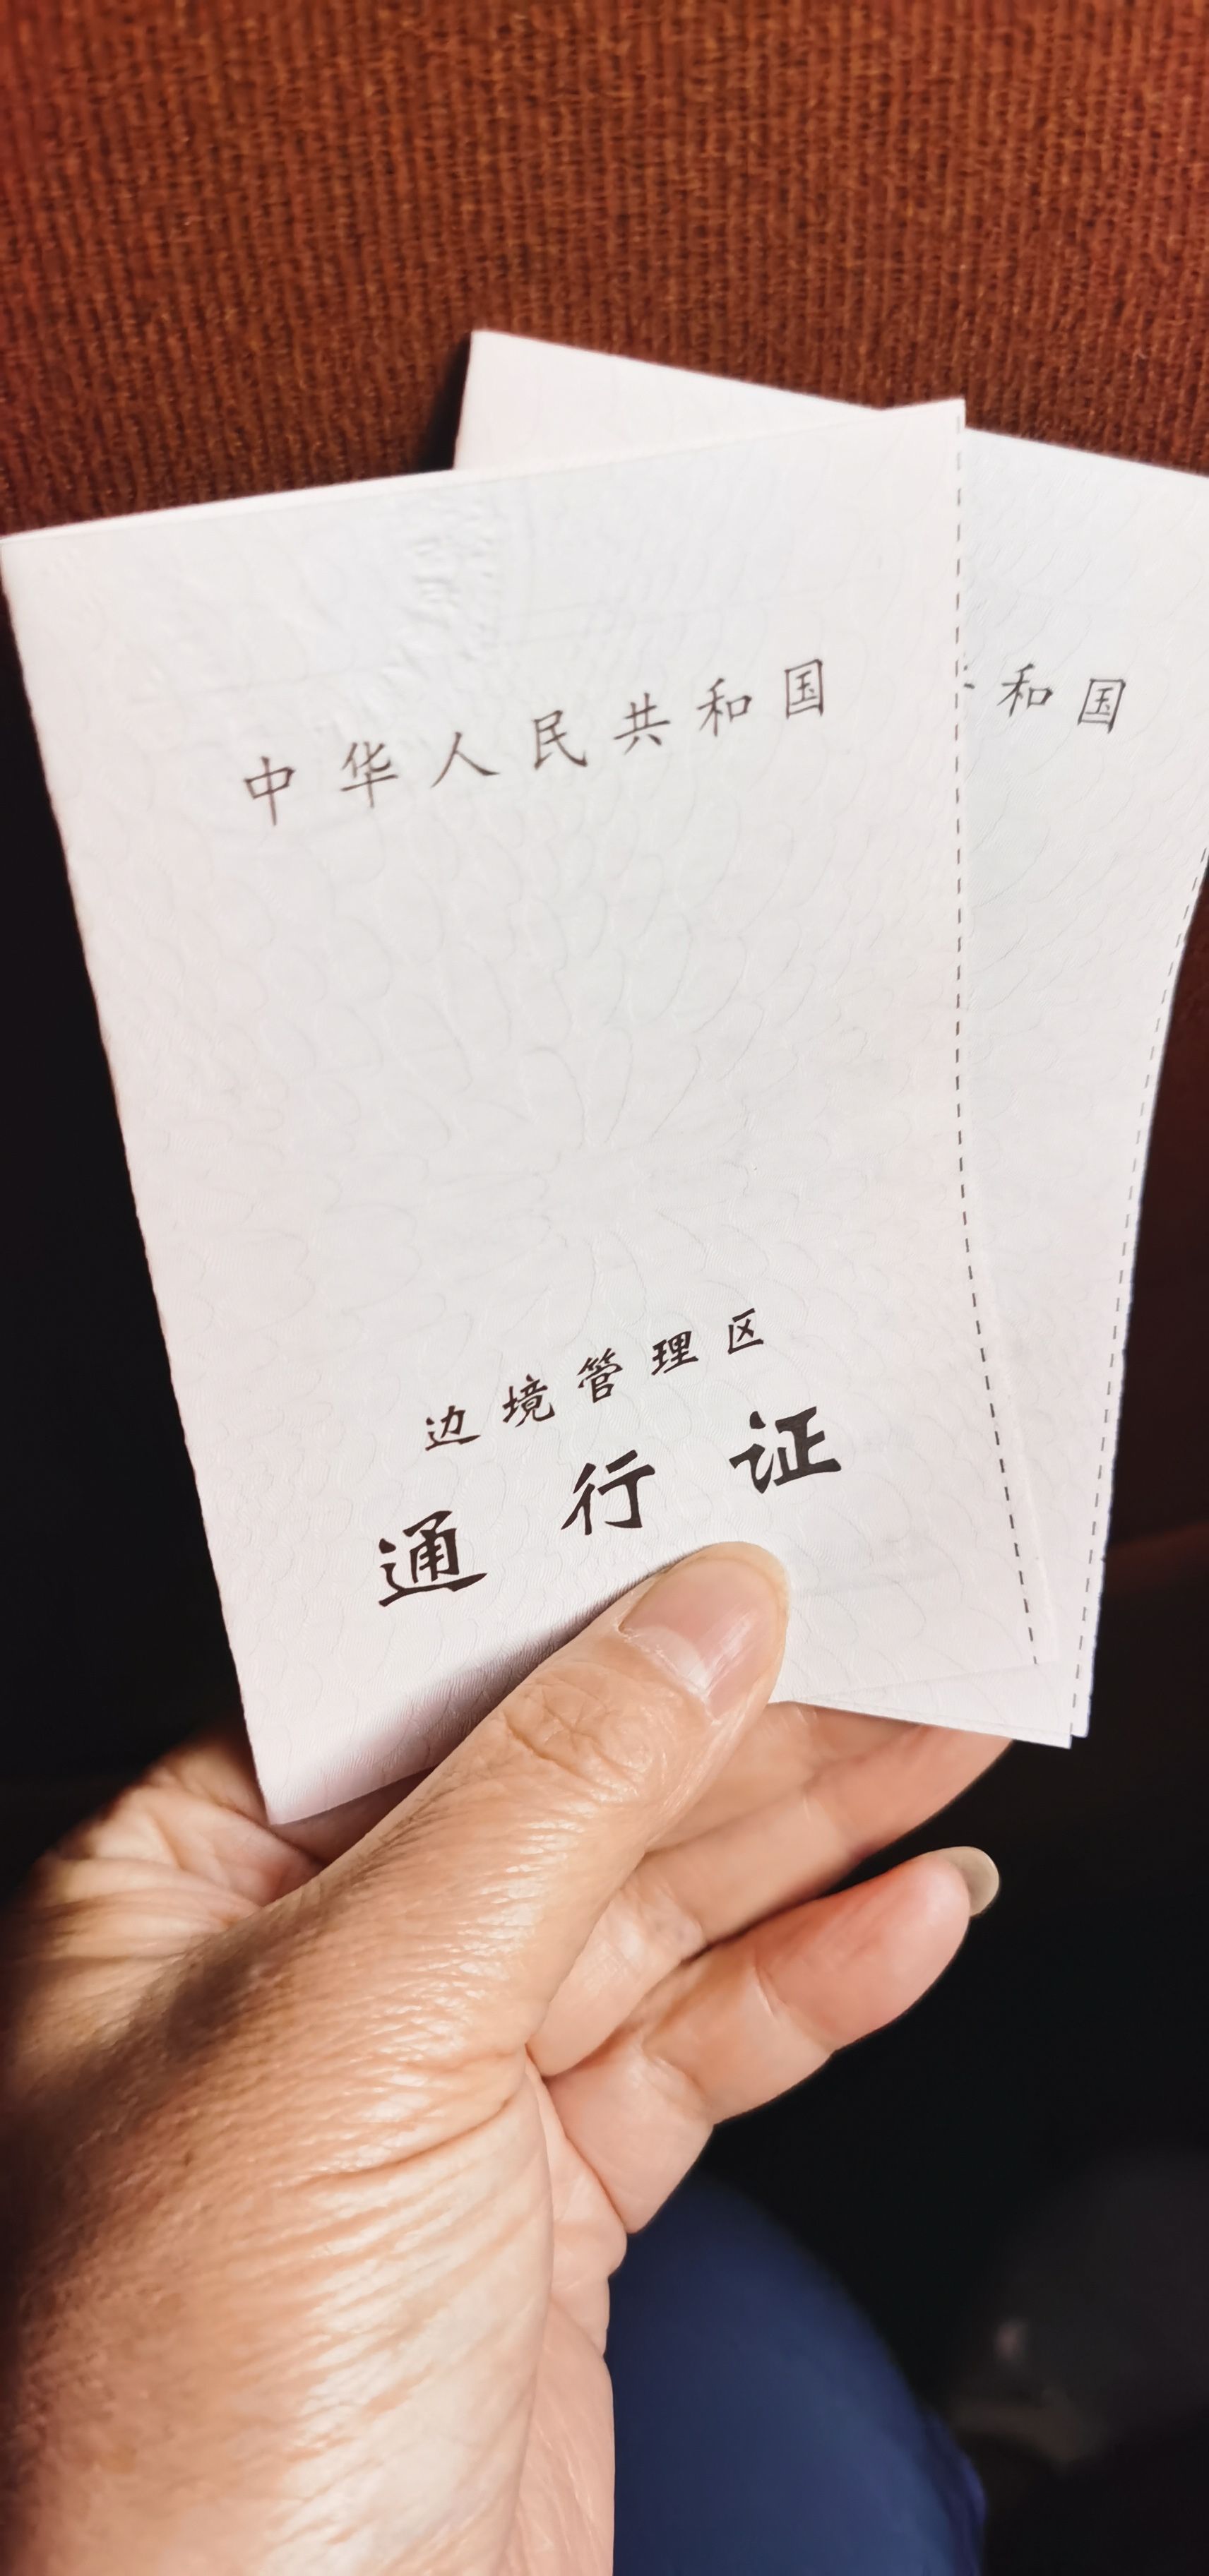 中华人民共和国
边境管理区
通行证
和国